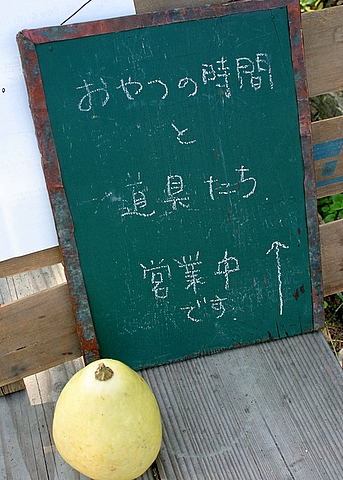 おやつの時間
と
道具たち
営業中
です